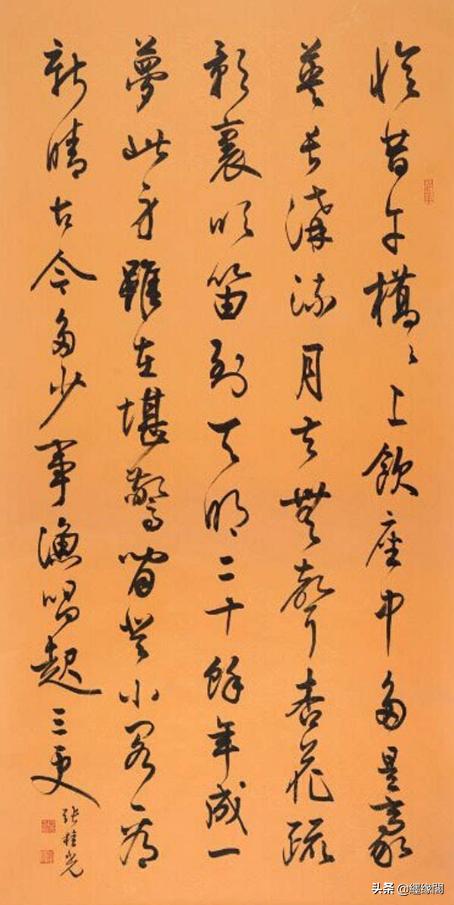 憶昔午橋々上飲座中多是豪
英長溝流月去無聲杏花疏
影裏吹笛到天明二十餘年成一
夢此身雖在堪驚閒登小閣看
新晴古今多少事漁唱起三更
張桂光
头条